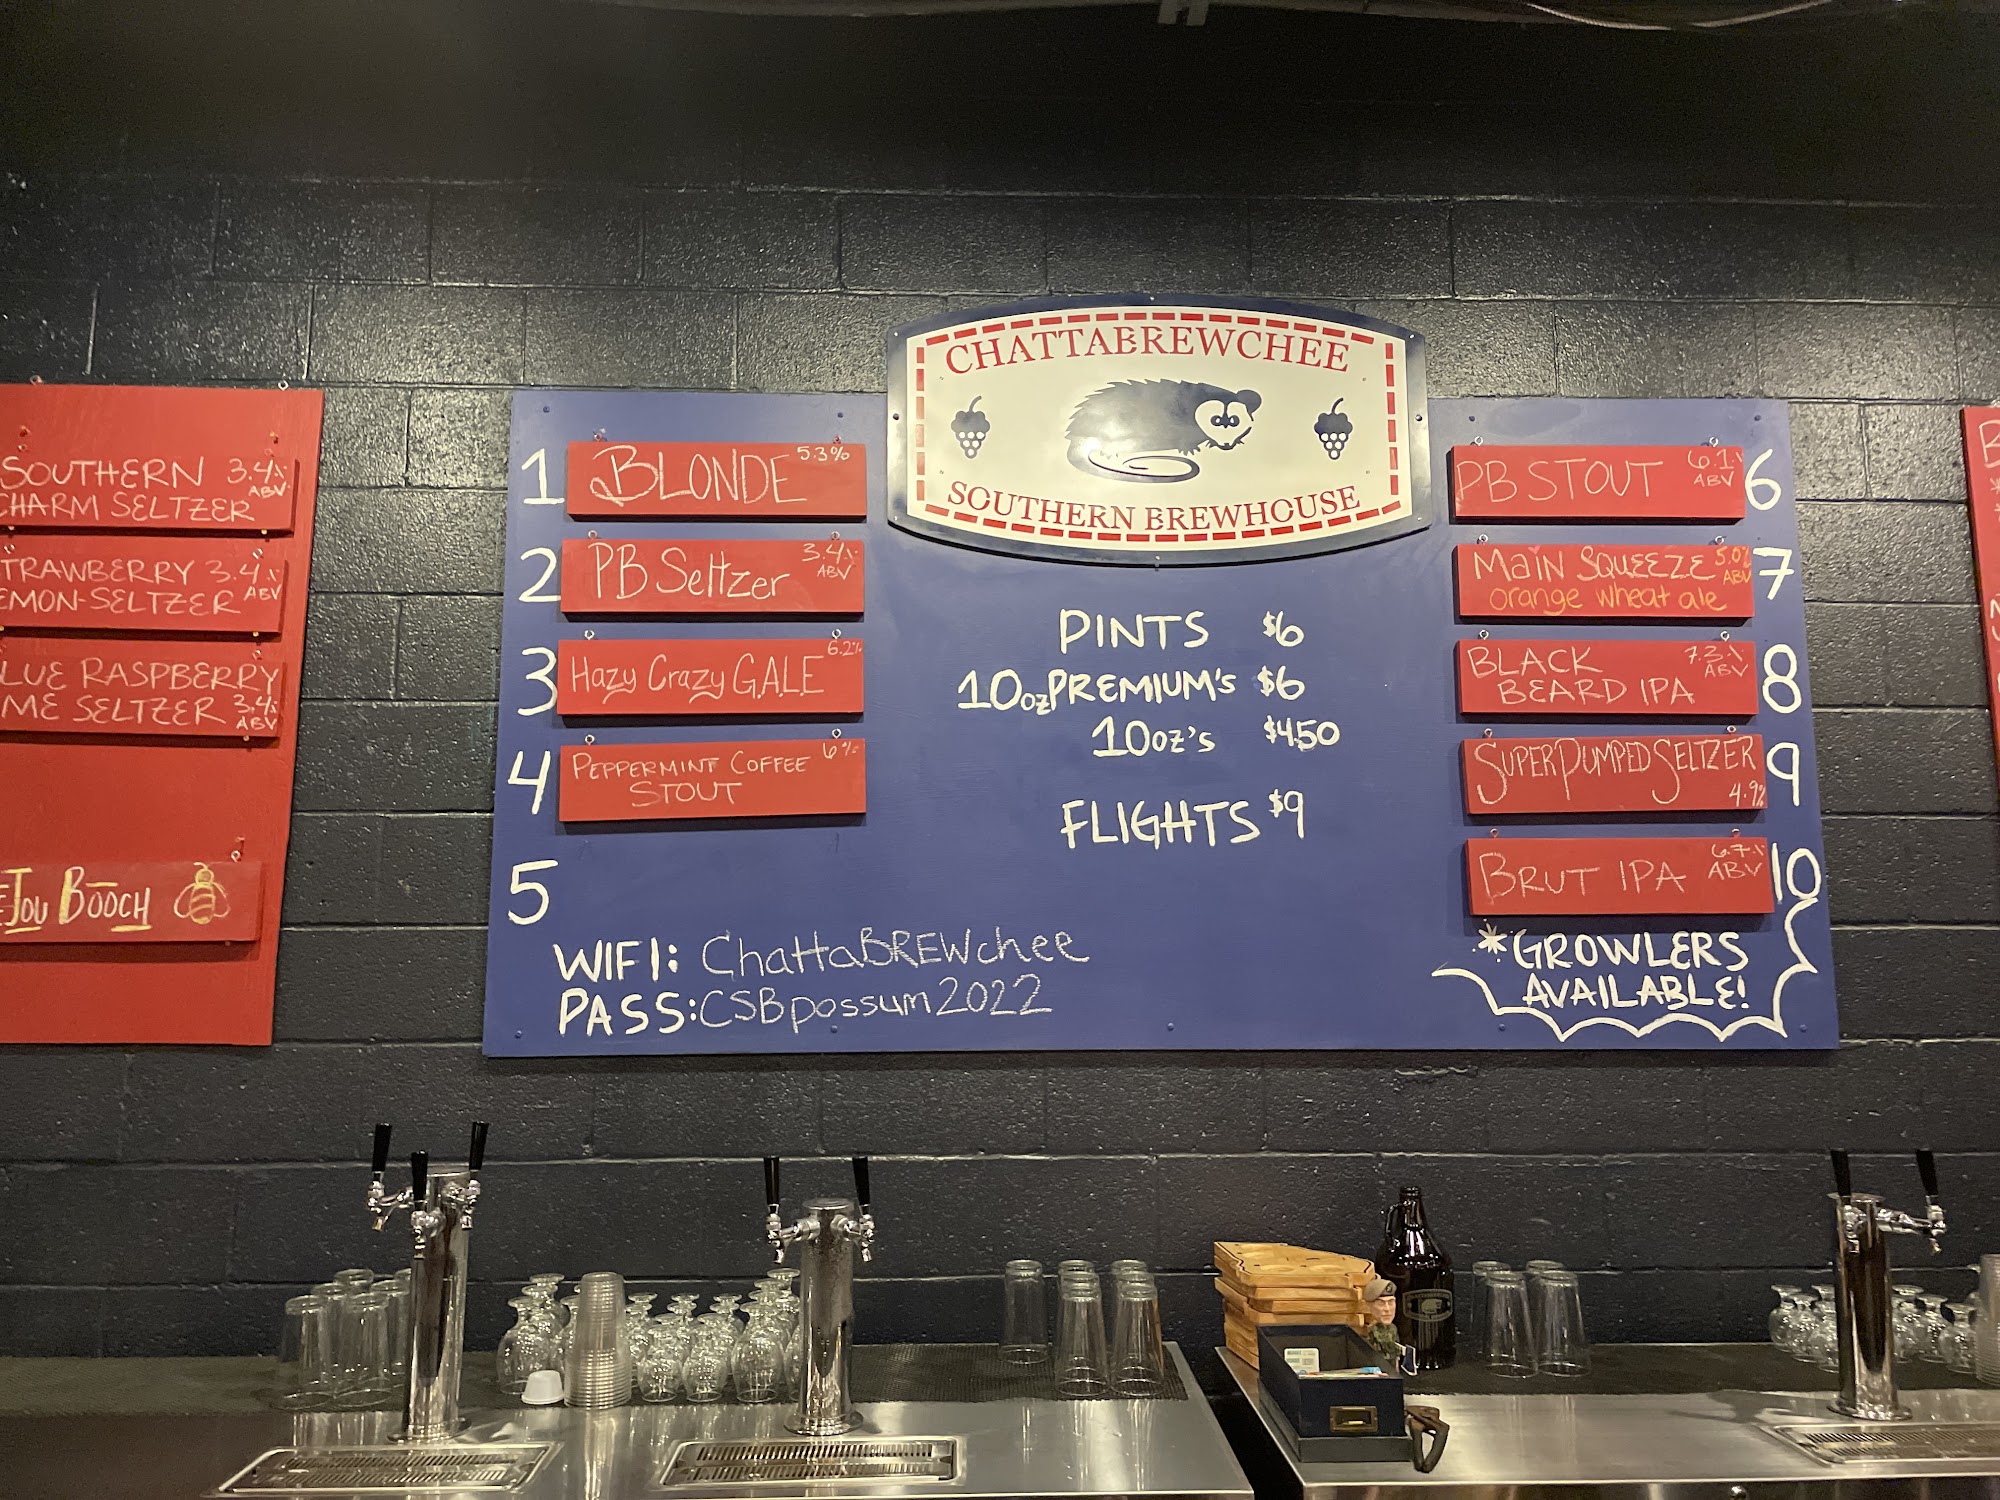 SOUTHERN 3.4%
CHARM SELTZER ABV
STRAWBERRY 3.4%
LEMON-SELTZER ABV
BLUE RASPBERRY
LIME SELTZER 3.4%
ABV
JOU BOOCH
CHATTABREWCHEE
SOUTHERN BREWHOUSE
1 BLONDE 5.3%
2 PB Seltzer 3.4%
ABV
3 Hazy Crazy G.A.L.E 6.2%
4 PEPPERMINT COFFEE 6%
STOUT
5
WIFI: ChattaBREWchee
PASS: CSBpossum2022
PINTS $6
10oz PREMIUM'S $6
10oz's $4.50
FLIGHTS $9
PB STOUT 6.1% 6
ABV
MAiN SQUEEZE 5.0% 7
orange wheat ale ABV
BLACK 7.3% 8
BEARD IPA ABV
SUPER PUMPED SELTZER 9
4.9%
BRUT IPA 6.7% 10
ABV
*GROWLERS
AVAILABLE!